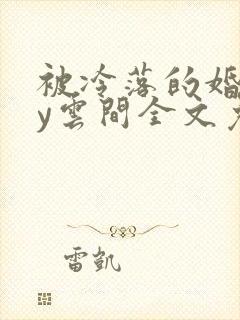 被冷落的婚
y雲間全文免
雷凱